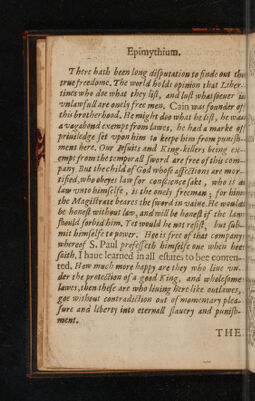 Epimythium.
There hath been long disputation to finde out the
true freedome. The world holds opinion that Liber-
tines who doe what they list, and lust whatsoever is
vnlawfull are onely free men. Cain was founder of
this brotherhood. He might doe what he list, he was
a vagabond exempt from lawes, he had a marke of
priuiledge set vpon him to keepe him from punish-
ment here. Our Iesuits and King-killers being ex-
empt from the temporall sword are free of this com-
pany. But the child of God whose affections are mor-
tified, who obeyes law for conscience sake, who is a
law vnto himselfe, is the onely freeman, for him
the Magistrate beares the sword in vaine. He would
be honest without law, and will be honest if the law
should forbid him. Yet would he not resist, but sub-
mit himselfe to power. Hee is free of that company
whereof S. Paul professeth himselfe one when hee
saith, I haue learned in all estates to bee conten-
ted. How much more happy are they who liue vn-
der the protection of a good King, and wholesome
lawes, then these are who liuing here like outlawes,
goe without contradiction out of momentary plea-
sure and liberty into eternall slauery and punish-
ment.
THE